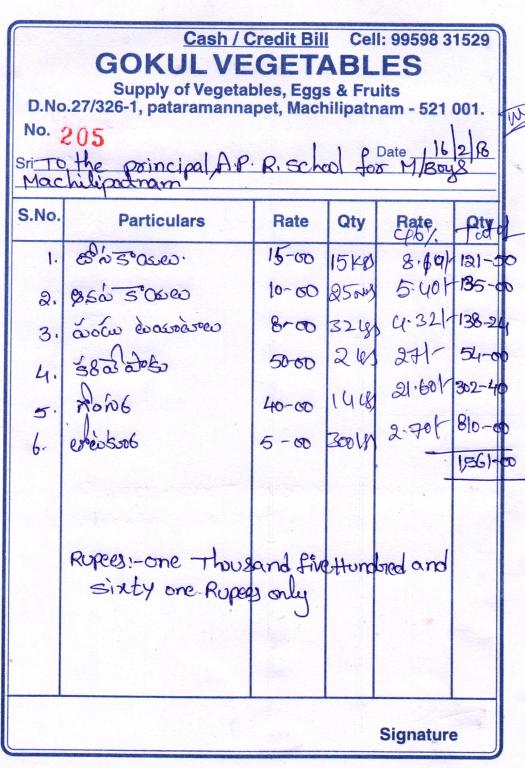 Cash / Credit Bill Cell: 99598 31529
GOKUL VEGETABLES
Supply of Vegetables, Eggs & Fruits
D.No.27/326-1, pataramannapet, Machilipatnam - 521 001.
No. 205
Date 16/2/18
Sri To the principal, A.P.R. School for M/Boys
Machilipatnam
S.No. Particulars Rate Qty Rate Qty
Total
1. దోసకాయలు. 15-00 15 KG 121-50
2. ఆనప కాయలు 10-00 25 KG 5.40/- 135-00
3. పండు టమాటాలు 8-00 32 KG 4.32/- 138-24
4. కరివేపాకు 50-00 2 KG 27/- 54-00
5. గోంగూర 40-00 14 KG 21.60/- 302-40
6. తోటకూర 5-00 300 KG 2.70/- 810-00
1,561-00
Rupees:- one Thousand five Hundred and
sixty one Rupees only
Signature